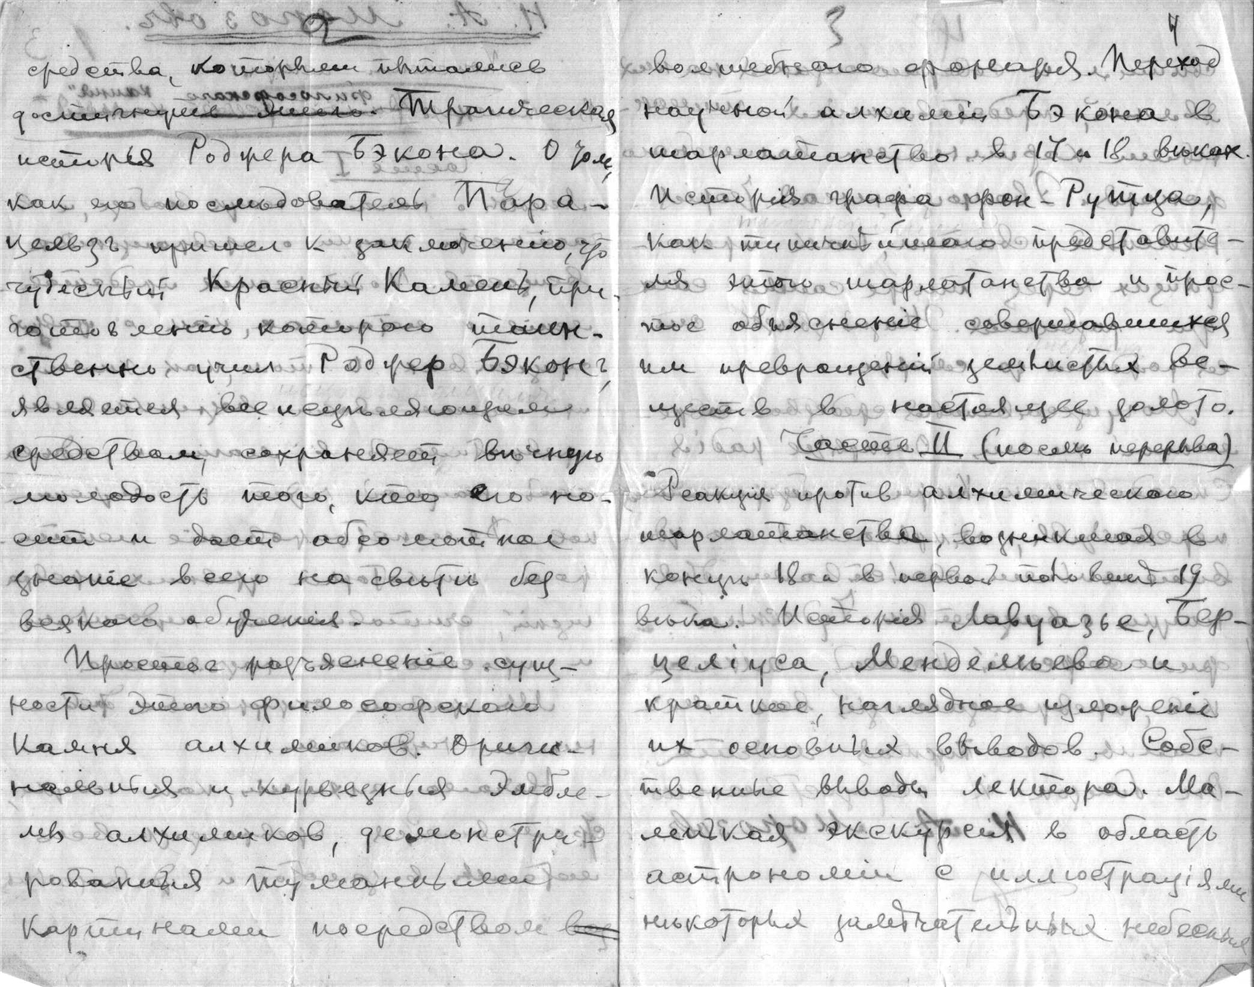 2
средства, которыми пытались
достигнуть этого. Трагическая
исторія Роджера Бэкона. О томъ,
как его последователь Пара-
цельзъ пришел к заключенію, что
чудесный Красный Камень, при-
готовленію которого таин-
ственно учил Роджер Бэконъ,
является всеисцеляющим
средством, сохраняет вѣчную
молодость того, кто его но-
сит и дает абсолютное
знаніе всего на свѣтѣ без
всякого обученія.
Простое разъясненіе сущ-
ности этого философского
Камня алхимиков. Ориги-
нальныя и курьезныя Эмбле-
мы алхимиков, демонстри-
рованныя туманными
картинами посредством
3
4
волшебного фонаря. Переход
научной алхиміи Бэкона в
шарлатанство в 17 и 18 вѣках.
Исторія графа фон-Рутца,
как типичнѣйшаго представите-
ля этого шарлатанства и прос-
тое объясненіе совершавшихся
им превращеній землистых ве-
ществ в настоящее золото.
Часть II (послѣ перерыва)
Реакція против алхимического
шарлатанства, возникшая в
концѣ 18 и в первой половинѣ 19
вѣка. Исторія Лавуазье, Бер-
целіуса, Менделѣева и
краткое, наглядное изложеніе
их основных выводов. Собс-
твенные выводы лектора. Ма-
ленькая экскурсія в область
астрономіи с иллюстраціями
нѣкоторых замѣчательных небесных